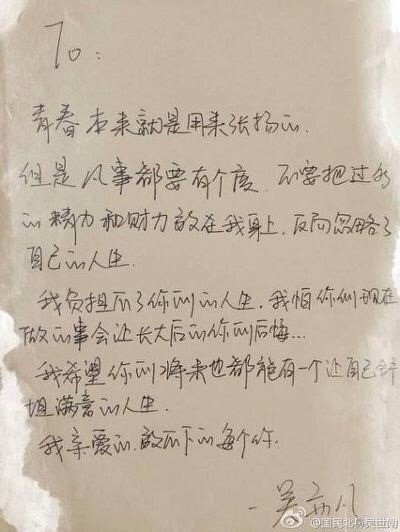 To:
青春本来就是用来张扬的.
但是凡事都要有个度. 不要把过多
的精力和财力放在我身上, 反而忽略了
自己的人生.
我负担不了你们的人生. 我怕你们现在
做的事会让长大后的你们后悔...
我希望你们将来也都能有一个让自己
坦满意的人生.
我亲爱的.放不下的每个你.
-吴亦凡
国民北鼻吴世勋